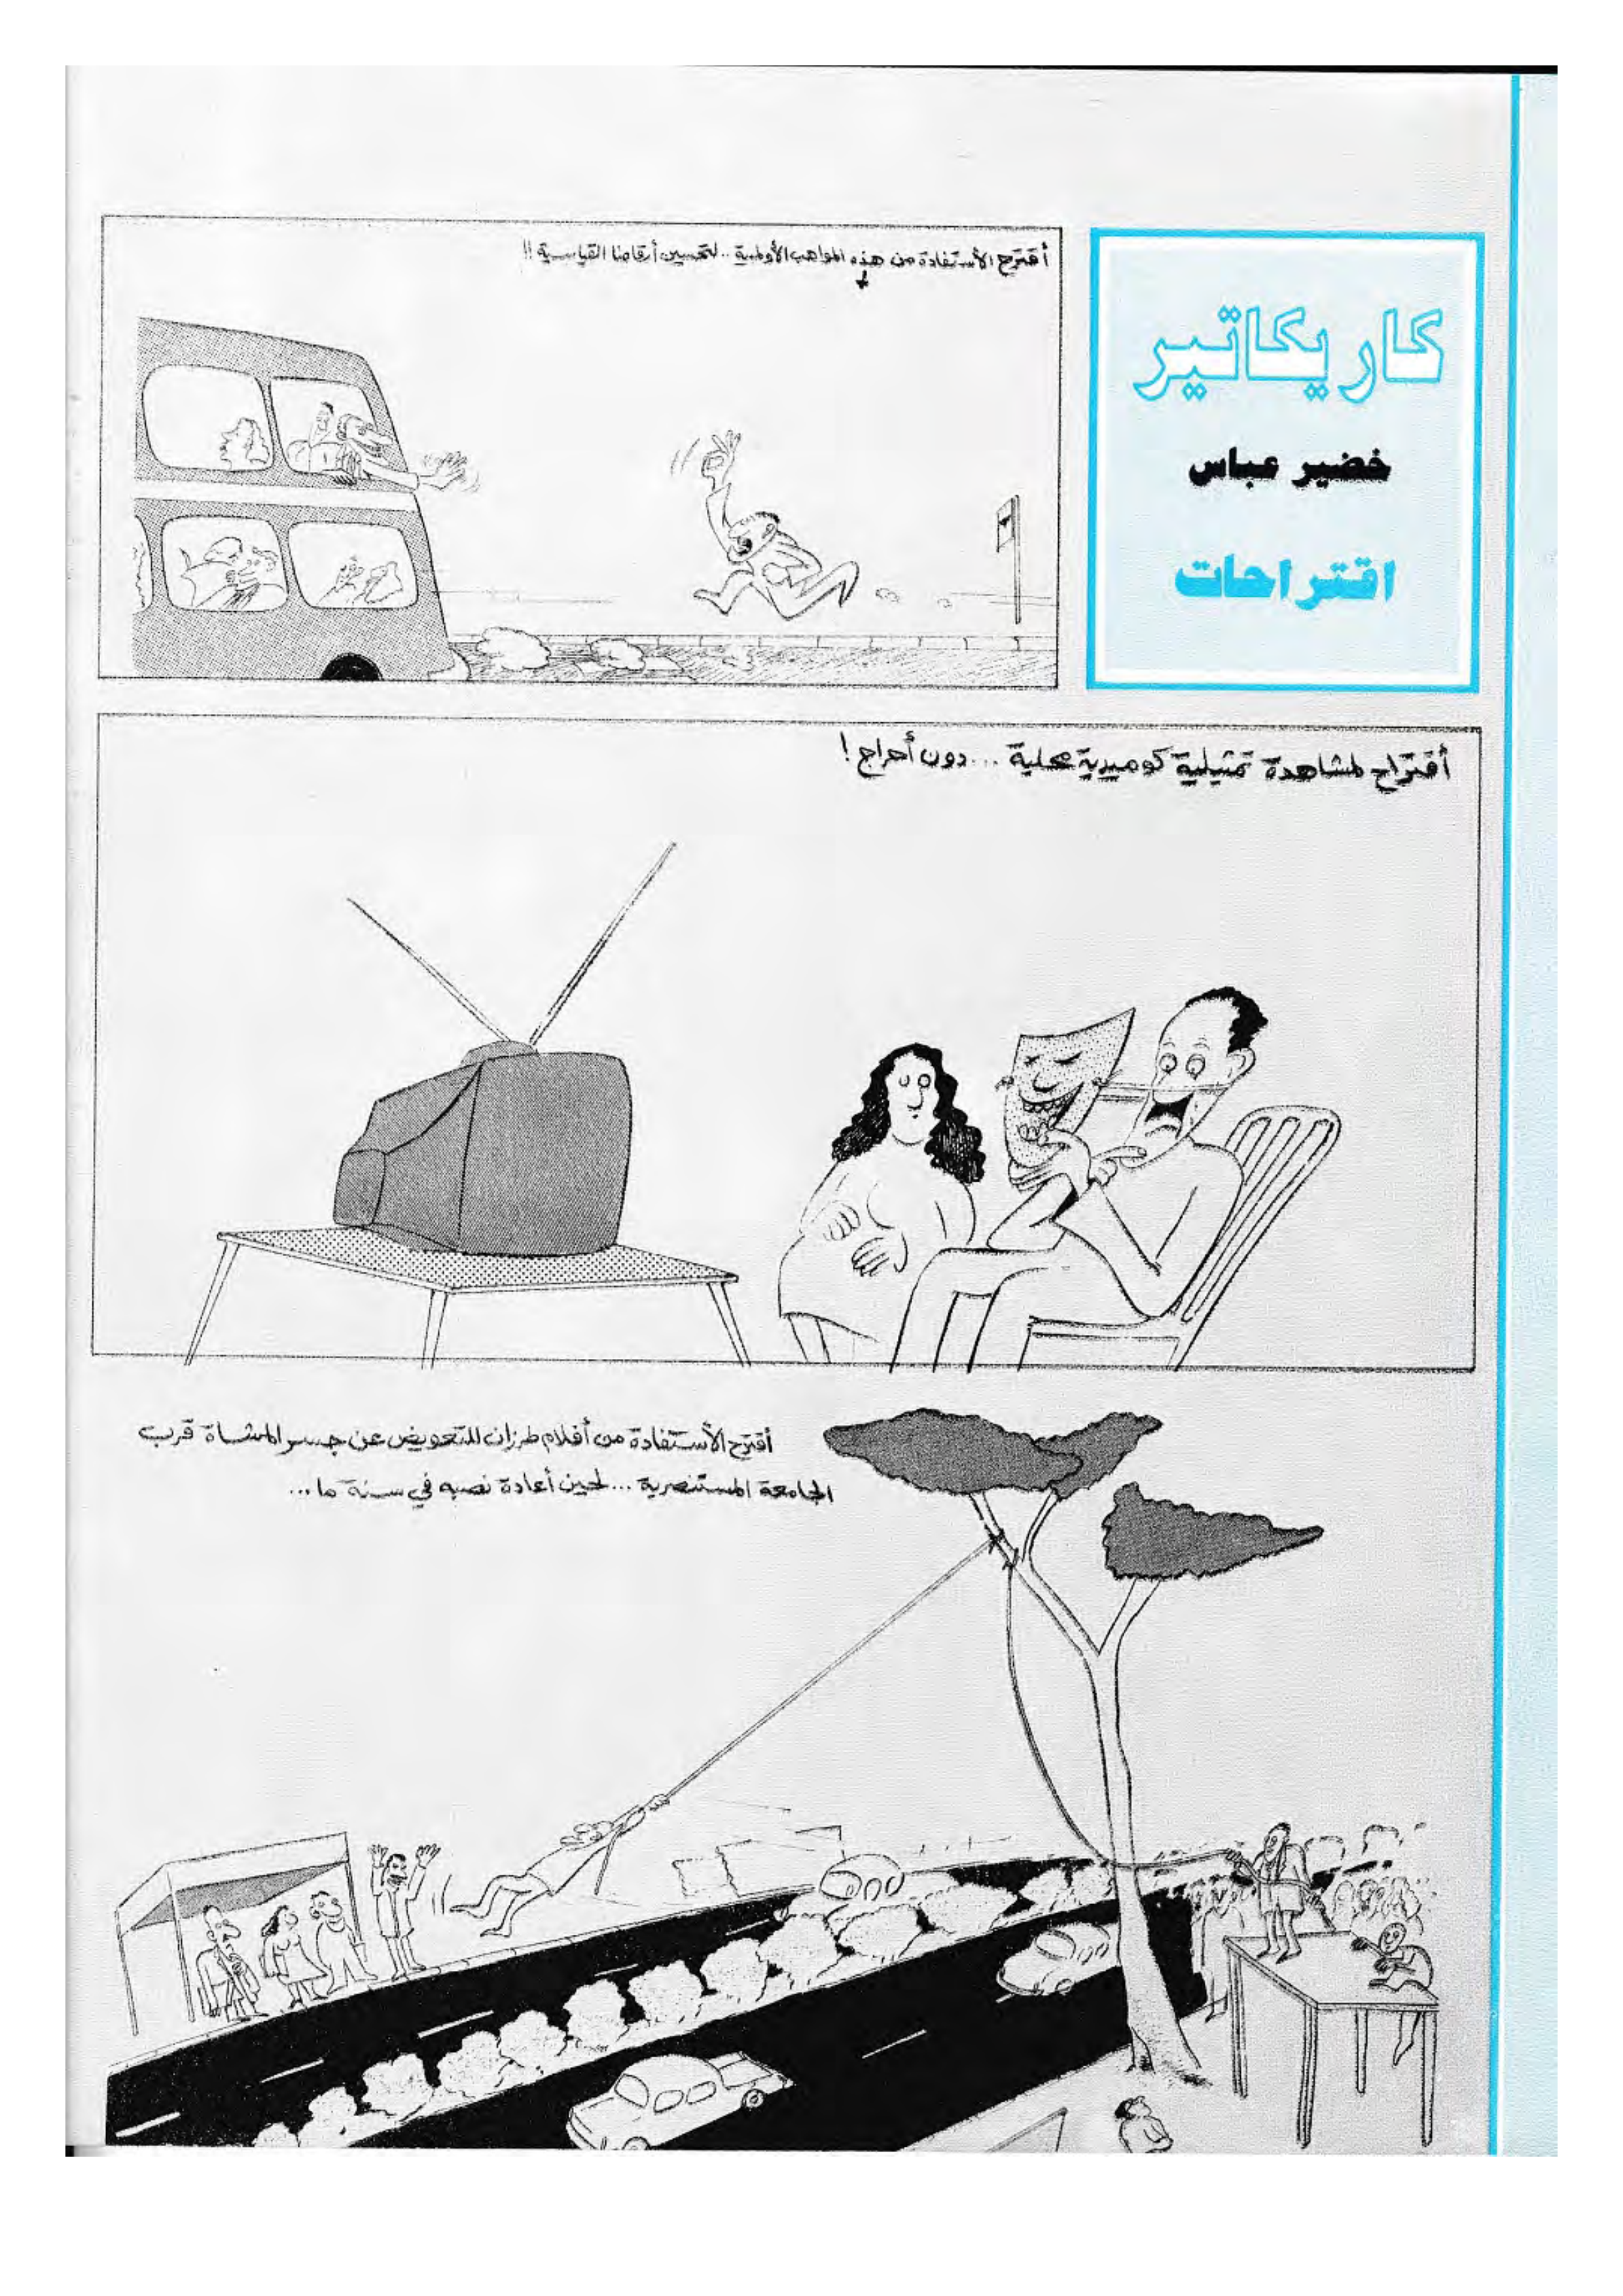 كاريكاتير
خضير عباس
اقتراحات
أقترح الأستفادة من هذه المواهب الأولمبية .. لتحسين أرقامنا القياسية !!
أقتراح لمشاهدة تمثيلية كوميدية محلية ... دون أحراج !
أقترح الأستفادة من أفلام طرزان للتعويض عن جسر المشاة قرب
الجامعة المستنصرية ... لحين أعادة نصبه في سنة ما ...